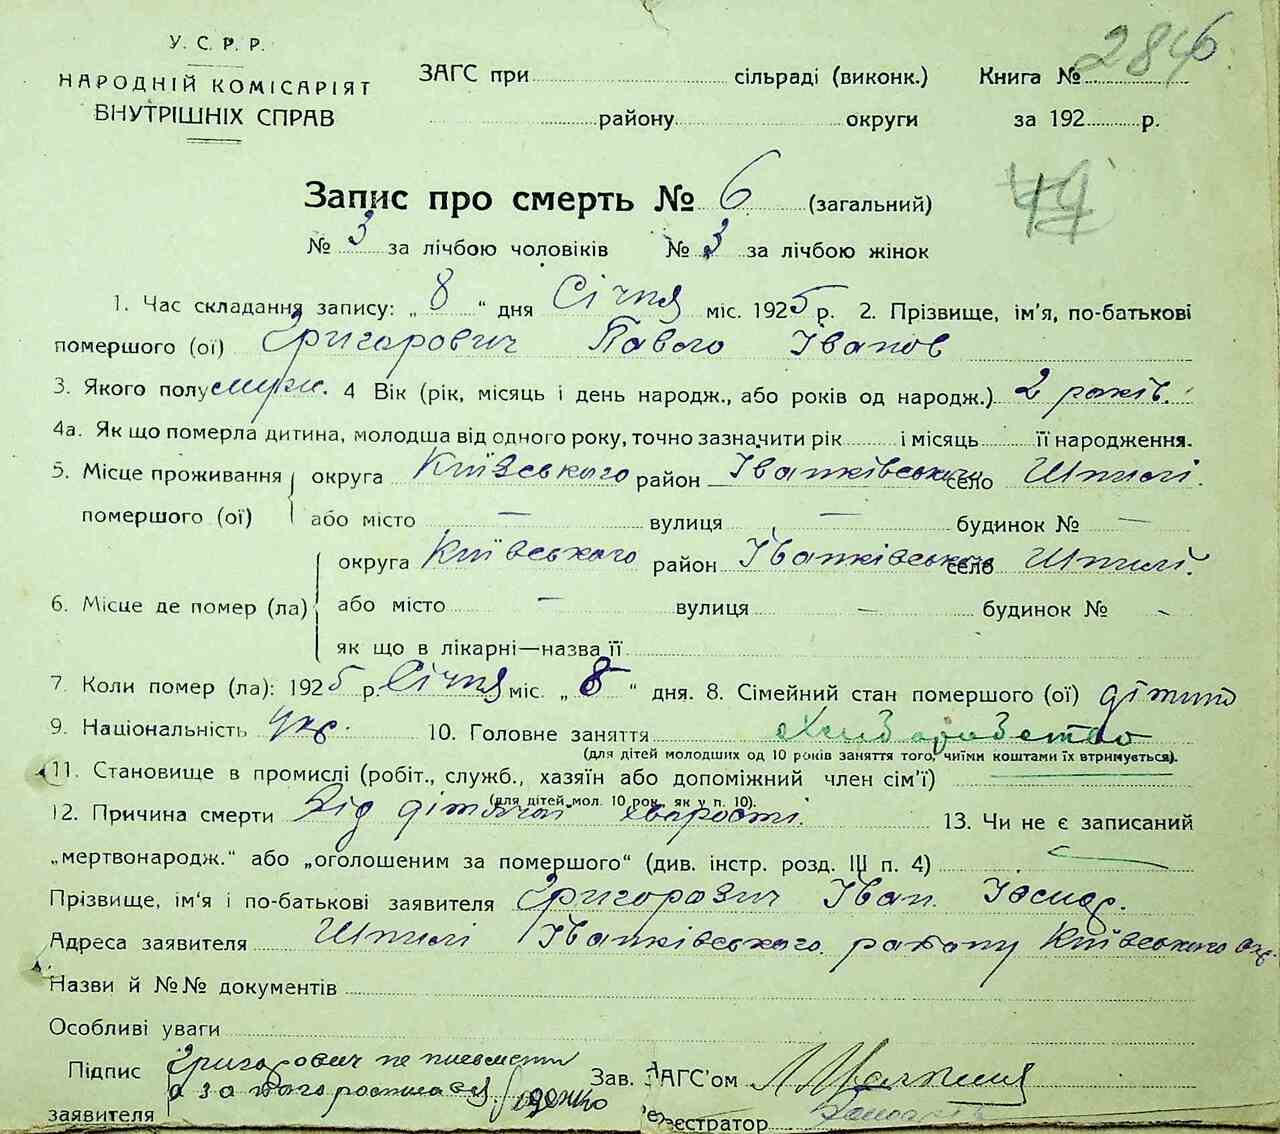 У. С. Р. Р.
НАРОДНІЙ КОМІСАРІЯТ
ВНУТРІШНІХ СПРАВ
ЗАГС при сільраді (виконк.)
району округи
Книга № 2846
за 192 р.
Запис про смерть № 6 (загальний)
№ 3 за лічбою чоловіків № 3 за лічбою жінок
1. Час складання запису: „ 8 “ дня Січня міс. 1925 р. 2. Прізвище, ім'я, по-батькові
помершого (ої) Григорович Павло Іванов
3. Якого полу муж. 4 Вік (рік, місяць і день народж., або років од народж.) 2 років.
4а. Як що померла дитина, молодша від одного року, точно зазначити рік і місяць її народження.
5. Місце проживання округа Київського район Іванківського село Шпилі.
помершого (ої) або місто — вулиця — будинок № —
округа Київського район Іванківського село Шпилі.
6. Місце де помер (ла) або місто — вулиця — будинок № -
як що в лікарні—назва її
7. Коли помер (ла): 1925 р. Січня міс. „ 8 “ дня. 8. Сімейний стан помершого (ої) дітина
9. Національність укр. 10. Головне заняття хліборобство
(для дітей молодших од 10 років заняття того, чиїми коштами їх втримується).
11. Становище в промислі (робіт., служб., хазяїн або допоміжний член сім'ї)
(для дітей мол. 10 рок. як у п. 10).
12. Причина смерти Від дітячої хварости. 13. Чи не є записаний
„мертвонародж.“ або „оголошеним за помершого“ (див. інстр. розд. III п. 4)
Прізвище, ім'я і по-батькові заявителя Григорович Іван
Адреса заявителя Шпилі Іванківського району Київського окр.
Назви й №№ документів
Особливі уваги
Підпис Григорович не письмени
заявителя а за його росписався
Зав. ЗАГС'ом
Реєстратор